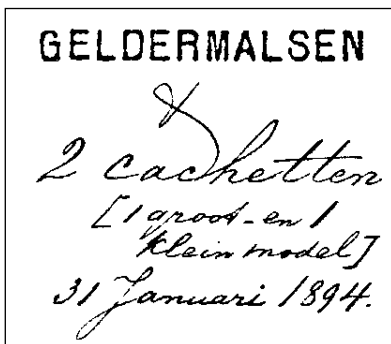 GELDERMALSEN
2 cachetten
[1 groot - en 1
klein model]
31 Januari 1894.